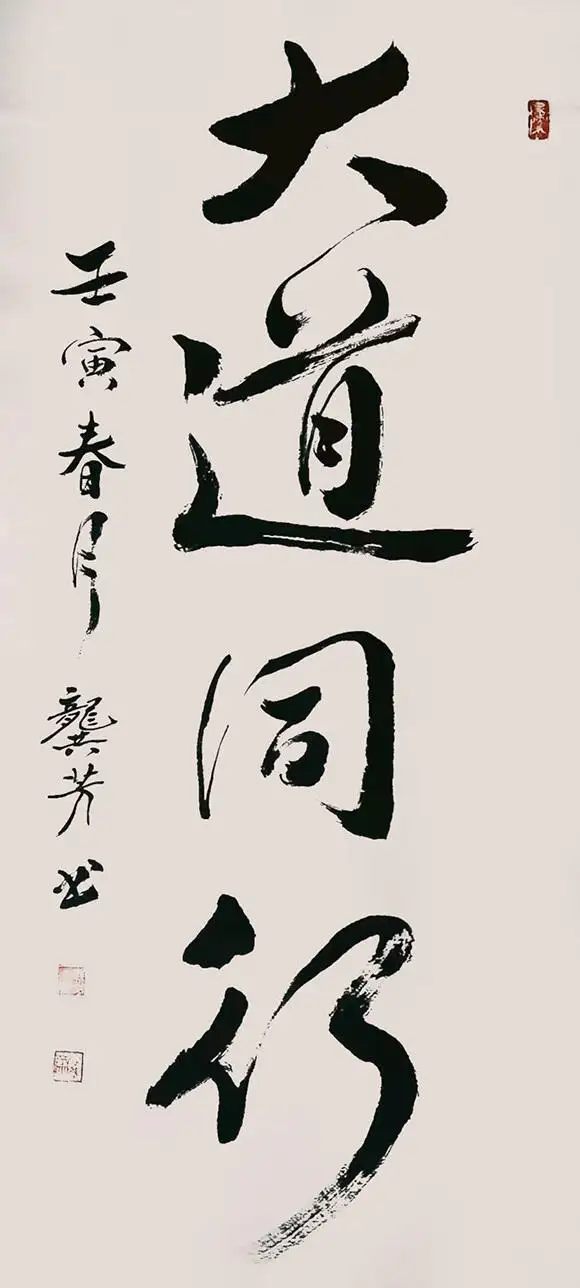 大道同行
壬寅春月 龔芳书